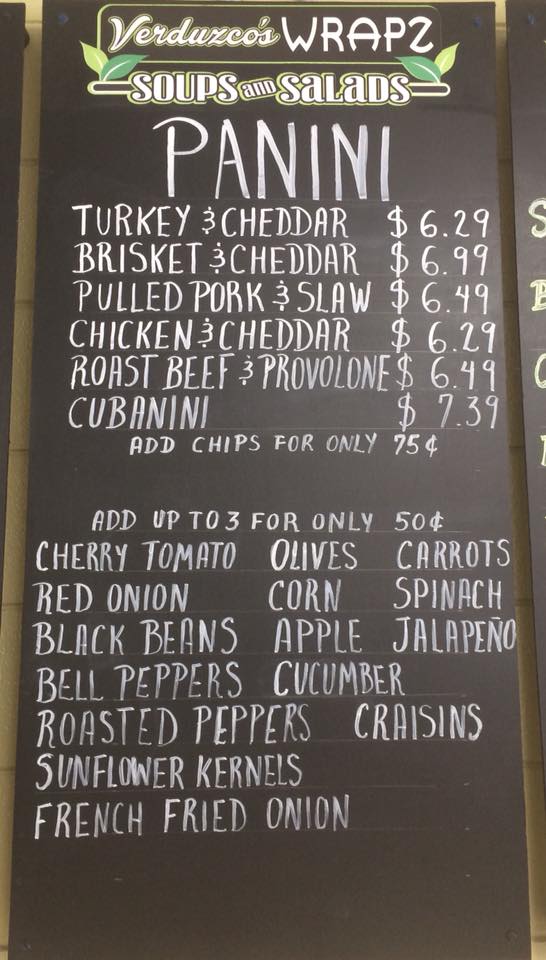 Verduzco's WRAPZ
SOUPS and SALADS
PANINI
TURKEY & CHEDDAR $ 6.29
BRISKET & CHEDDAR $ 6.99
PULLED PORK & SLAW $ 6.49
CHICKEN & CHEDDAR $ 6.29
ROAST BEEF & PROVOLONE $ 6.49
CUBANINI $ 7.39
ADD CHIPS FOR ONLY 75¢
ADD UP TO 3 FOR ONLY 50¢
CHERRY TOMATO OLIVES CARROTS
RED ONION CORN SPINACH
BLACK BEANS APPLE JALAPEÑO
BELL PEPPERS CUCUMBER
ROASTED PEPPERS CRAISINS
SUNFLOWER KERNELS
FRENCH FRIED ONION